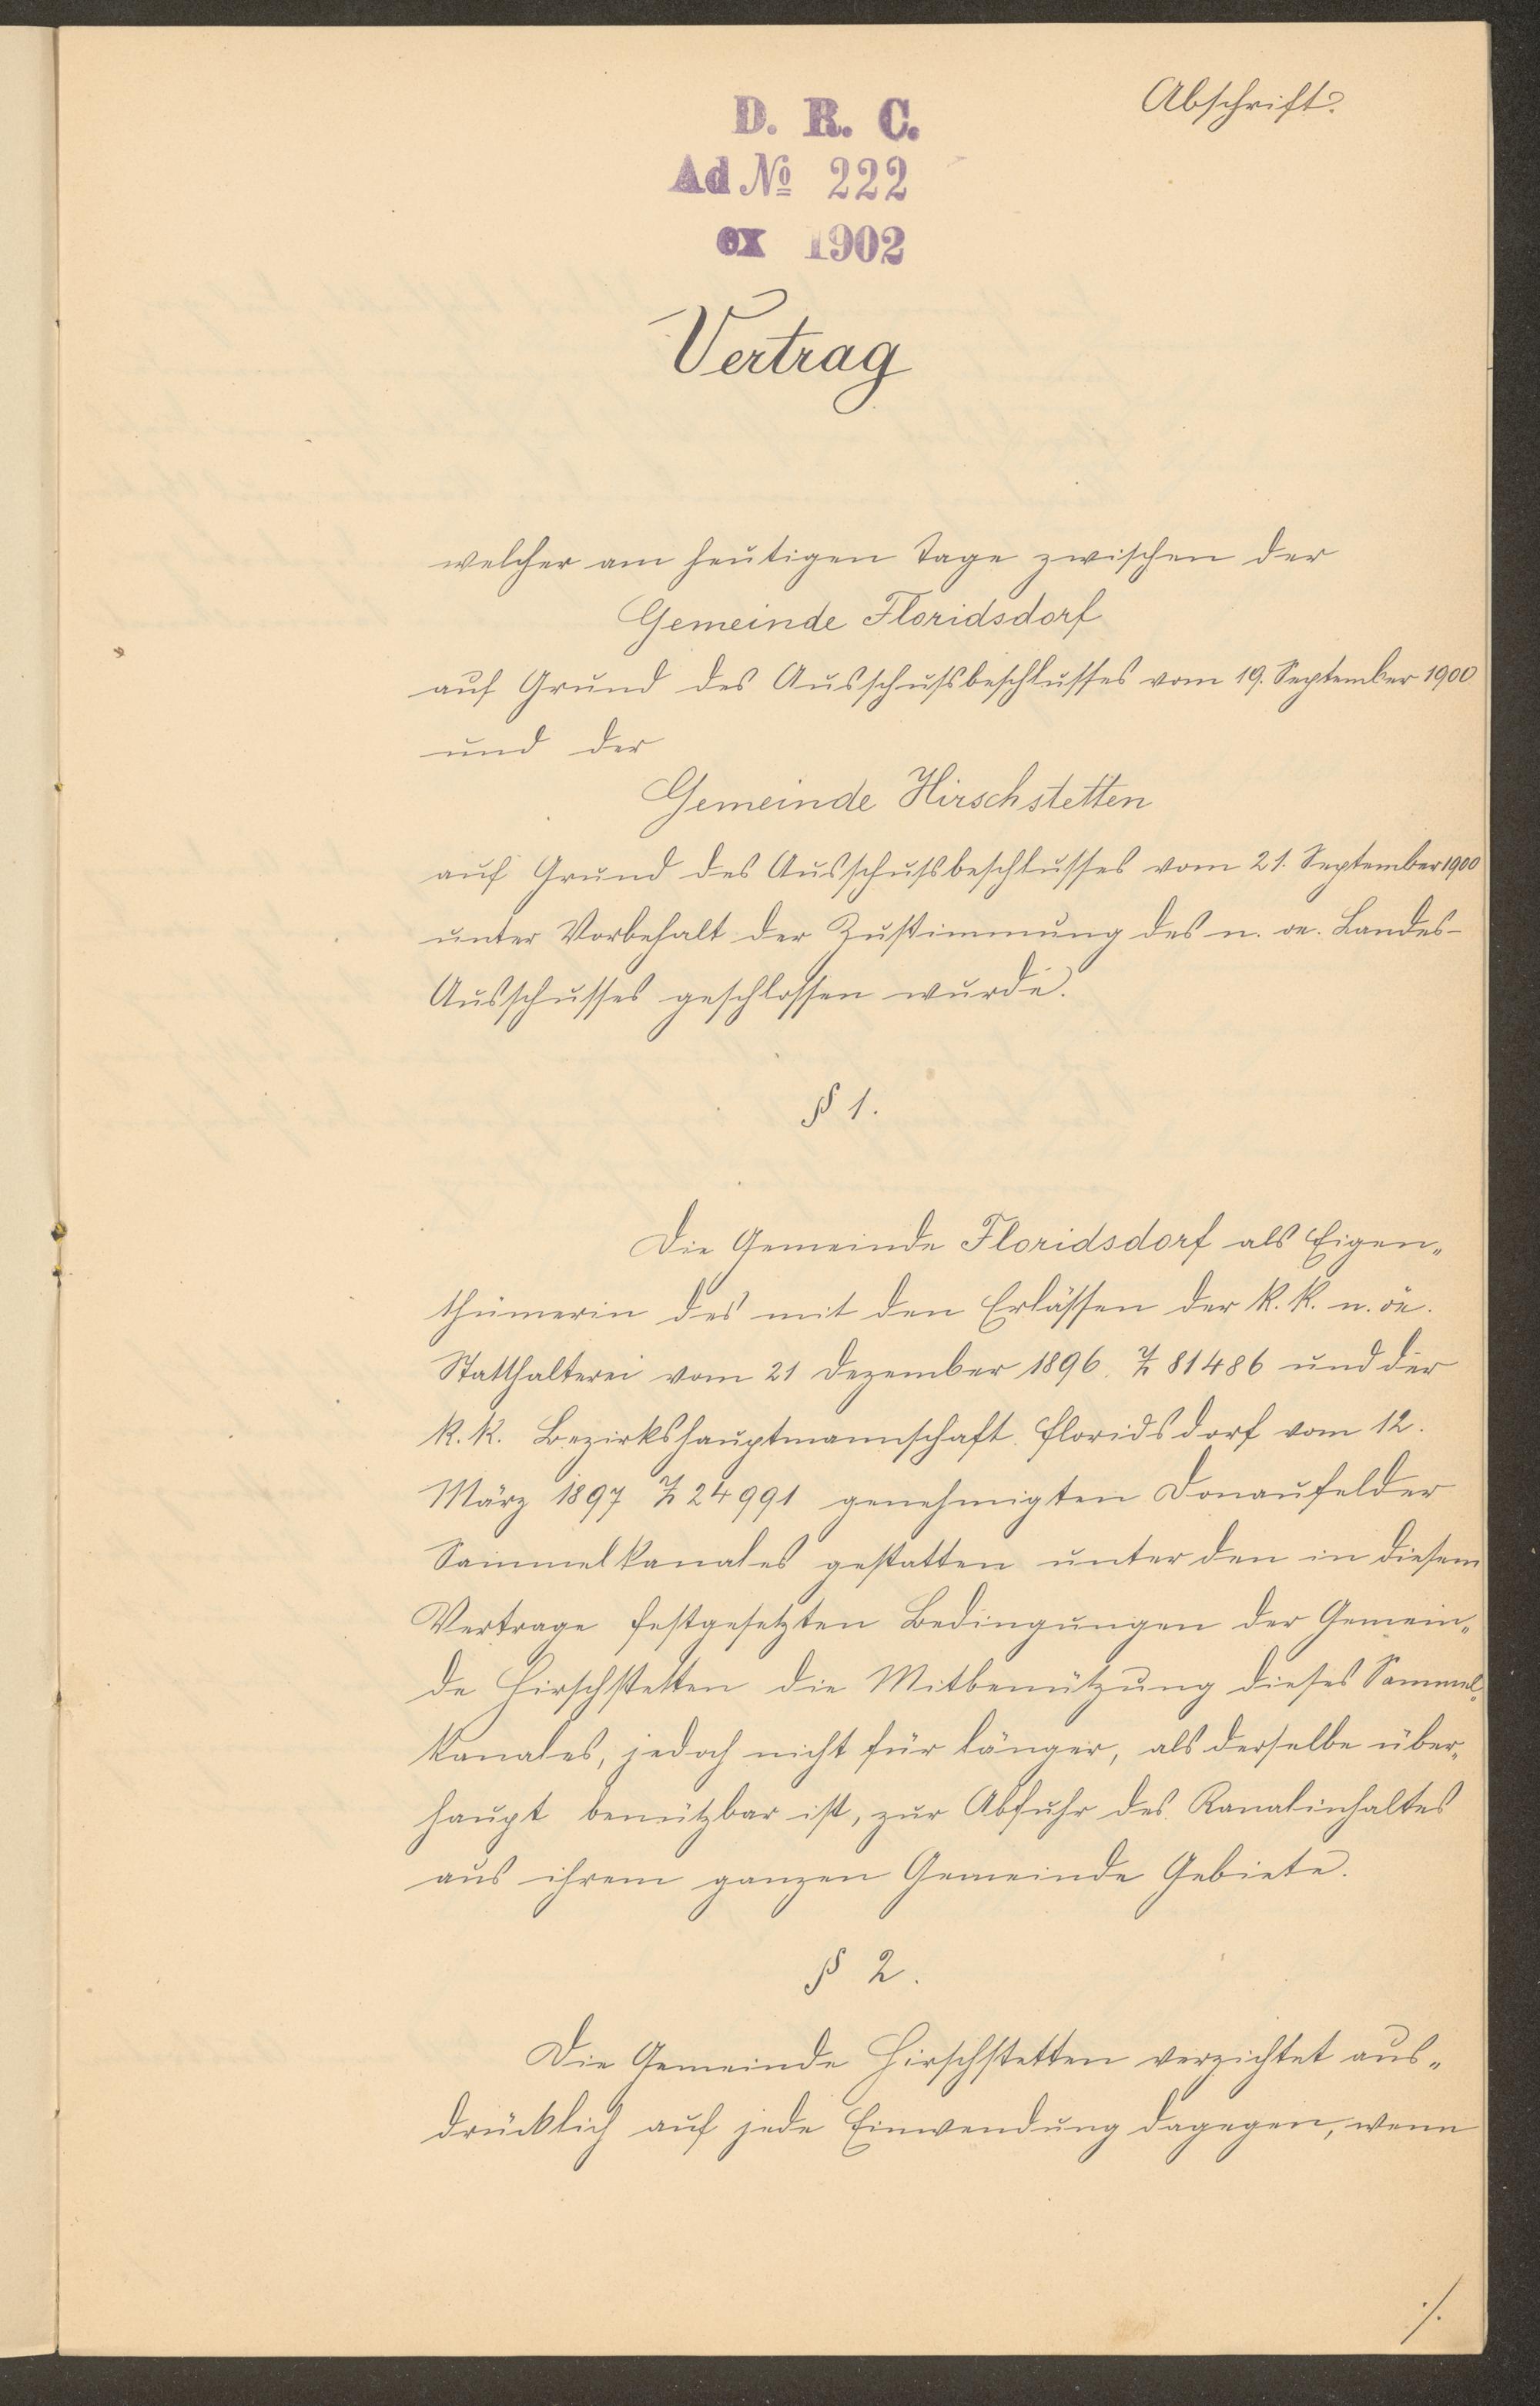 Abschrift.
D. R. C.
Ad № 222
ex 1902
Vertrag
welcher am heutigen Tage zwischen der
Gemeinde Floridsdorf
auf Grund des Ausschußbeschlusses vom 19. September 1900
und der
Gemeinde Hirschstetten
auf Grund des Ausschußbeschlusses vom 21. September 1900
unter Vorbehalt der Zustimmung des n. oe. Landes-
Ausschusses geschlossen wurde.
§ 1.
Die Gemeinde Floridsdorf als Eigen„
thümerin des mit den Erlässen der k. k. n. öe.
Statthalterei vom 21 Dezember 1896. Z 81486 und der
k. k. Bezirkshauptmannschaft Floridsdorf vom 12.
März 1897 Z 24991 genehmigten Donaufelder
Sammelkanales gestatten unter den in diesem
Vertrage festgesetzten Bedingungen der Gemein„
de Hirschstetten die Mitbenützung dieses Sammel„
kanales, jedoch nicht für länger, als derselbe über„
haupt benützbar ist, zur Abfuhr des Kanalinhaltes
aus ihrem ganzen Gemeinde Gebiete.
§ 2.
Die Gemeinde Hirschstetten verzichtet aus„
drücklich auf jede Einwendung dagegen, wenn
./.